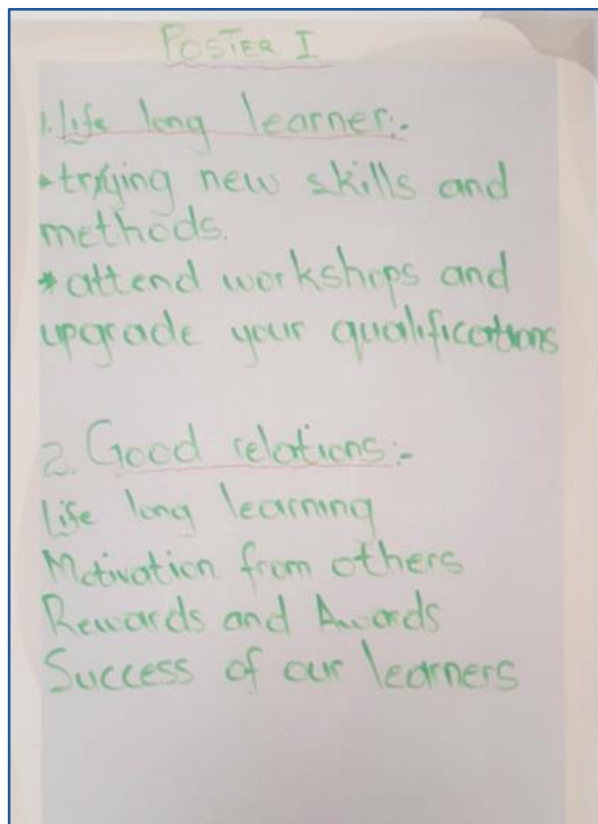 POSTER I
1. Life long learner:-
*trying new skills and
methods.
*attend workshops and
upgrade your qualifications
2. Good relations:-
Life long learning
Motivation from others
Rewards and Awards
Success of our learners